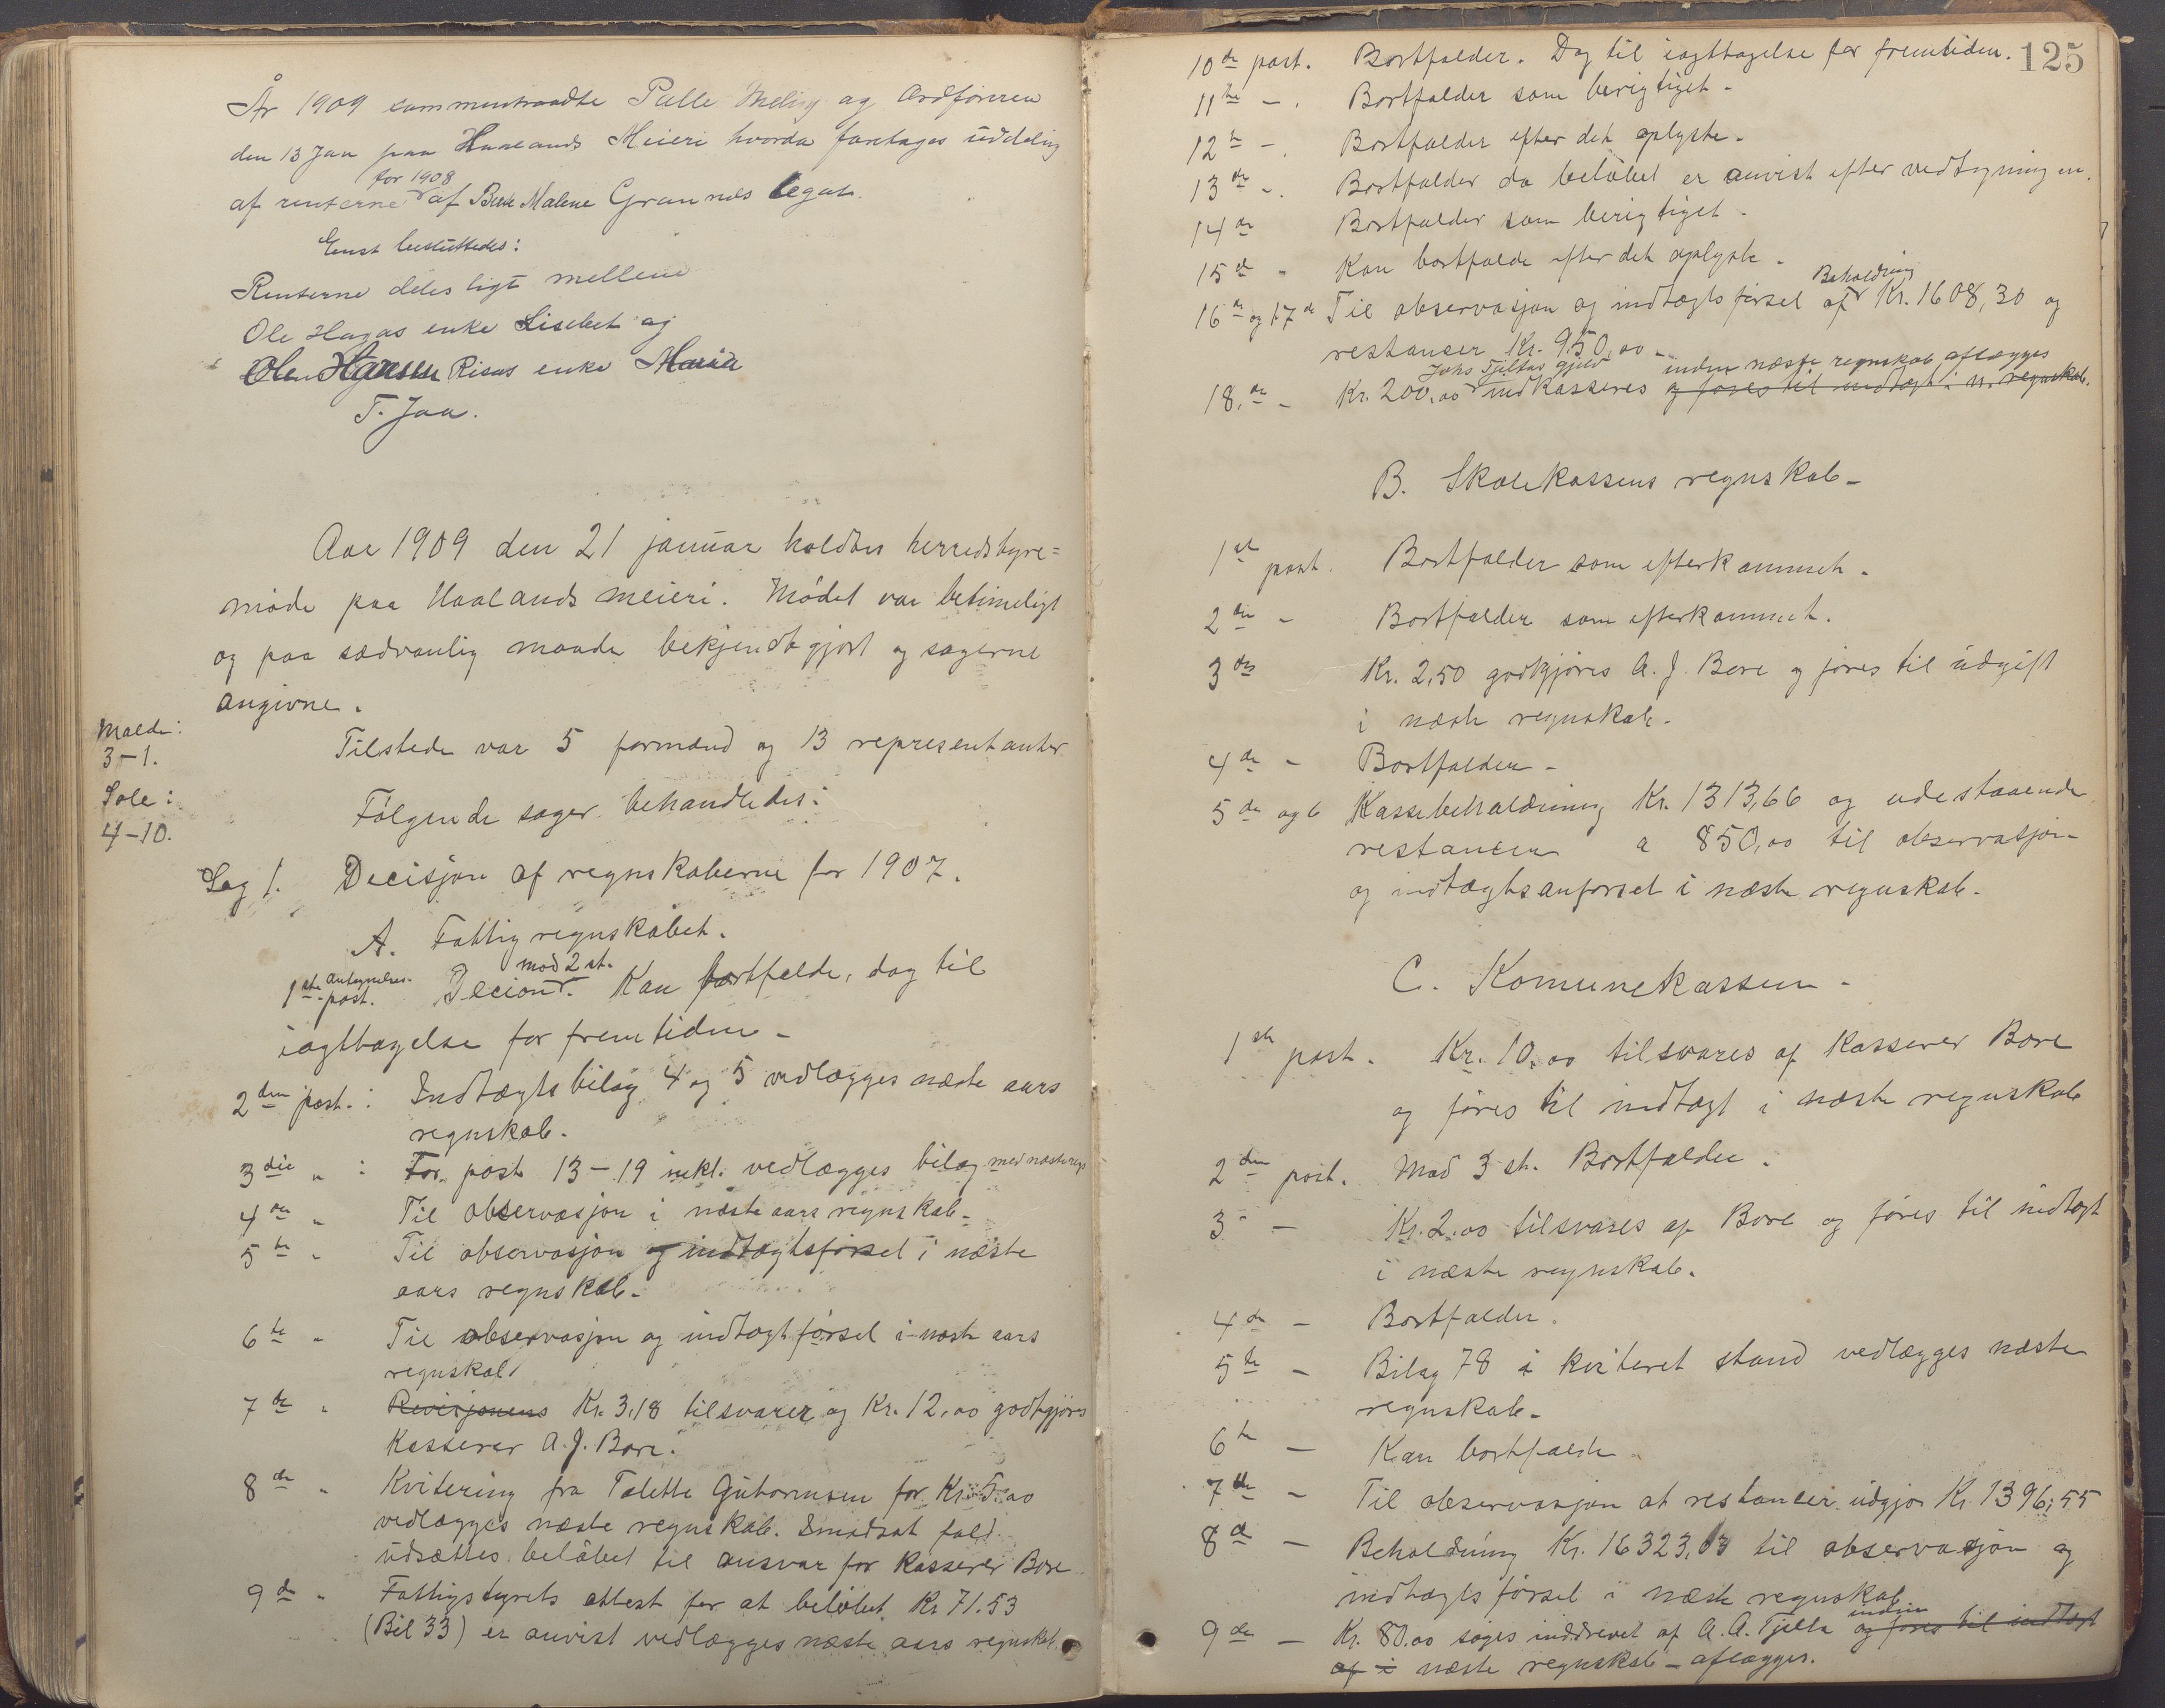 År 1909 sammentraadte Palle Meling og Ordføreren
den 13 Jan paa Haalands Meieri hvorda foretages uddeling
for 1908
af renterne af Malene Grannes legat.
Enst besluttedes:
Renterne deles ligt mellem
Ole Hagas enke Lisebet og
Olen Hansen Risas enke Maria
T. Jaa.
Aar 1909 den 21 januar holdtes herredstyre=
møde paa Haalands meieri. Mødet var betimeligt
og paa sædvanlig maade bekjendtgjort og sagerne
angivne.
Malde:
3-1.
Sole:
4-10.
Tilstede var 5 formænd og 13 representanter
Følgende sager behandledes:
Sag 1. Decisjon af regnskaberne for 1907.
A. Fattigregnskabet.
1ste antegnelses-post. Decion mod 2 st. Kan bortfalde, dog til
iagttagelse for fremtiden -
2den post.: Indtægtsbilag 4 og 5 vedlægges næste aars
regnskab.
3die " : For post 13-19 inkl. vedlægges bilag med næste regs
4de " Til observasjon i næste aars regnskab -
5te " Til observasjon og indtægtsførsel i næste
aars regnskab -
6te " Til observasjon og indtægtførsel i næste aars
regnskab
7de " Revisjonens Kr. 3,18 tilsvarer og Kr. 12,00 godtgjøres
Kasserer A. J. Bore.
8de " Kvitering fra Talette Guttormsen for Kr. 5.00
vedlægges næste regnskab. I modsat fald
udsættes beløbet til ansvar for Kasserer Bore
9de " Fattigstyrets attest for at beløbet Kr 71.53
(Bil 33) er anvist vedlægges næste aars regnskab.
125
10de post. Bortfalder. Dog til iagttagelse for fremtiden.
11te - . Bortfalder som berigtiget -
12te - . Bortfalder efter det oplyste -
13de - . Bortfalder da beløbet er anvist efter vedtegningen.
14de Bortfalder som berigtiget -
15de " Kan bortfalde efter det oplyste -
16de og 17de Til observasjon og indtægtsførsel af Beholdning Kr. 1608,30 og
restanser Kr. 950,00 -
Johs Tjeltas gjeld inden næste regnskab aflægges
18.de - Kr. 200,00 indkasseres og føres til indtægt i n. regnskab.
B. Skolekassens regnskab -
1ste post. Bortfalder som efterkommet -
2den - Bortfalder som efterkommet.
3die Kr. 2,50 godtgjøres A. J. Bore og føres til udgift
i næste regnskab -
4de - Bortfalder -
5de og 6 Kassebeholdning Kr. 1313,66 og udestaaende
restanser a 850,00 til observasjon
og indtægtsanførsel i næste regnskab -
C. Komunekassen -
1ste post. Kr. 10,00 tilsvares af Kasserer Bore
og føres til indtægt i næste regnskab
2den post. Mod 3 st. Bortfalder.
3 - - Kr. 2.00 tilsvares af Bore og føres til indtægt
i næste regnskab.
4de - Bortfalder.
5te - Bilag 78 i kviteret stand vedlægges næste
regnskab -
6te - Kan bortfalde
7de - Til observasjon at restanser udgjør Kr. 1396,55
8de - Beholdning Kr. 16323,03 til observasjon og
indtægtsførsel i næste regnskab
9de - Kr. 80.00 søges inddrevet af A. A. Tjelta inden og føres til indtægt
af i næste regnskab - aflægges.